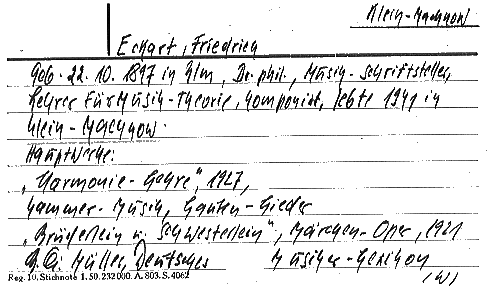 Klein-Machnow
Eckart, Friedrich
Geb. 22. 10. 1897 in Ulm, Dr. phil., Musik-Schriftsteller,
Lehrer für Musik-Theorie, Komponist, lebte 1941 in
Klein-Machnow.
Hauptwerke:
„Harmonie-Lehre", 1927,
Kammer-Musik, Lauten-Lieder
„Brüderlein u. Schwesterlein", Märchen-Oper, 1921
Müller, Deutsches Musiker-Lexikon
(W)
Reg. 10. Stichnote 1. 50. 232000. A. 803. S. 4062